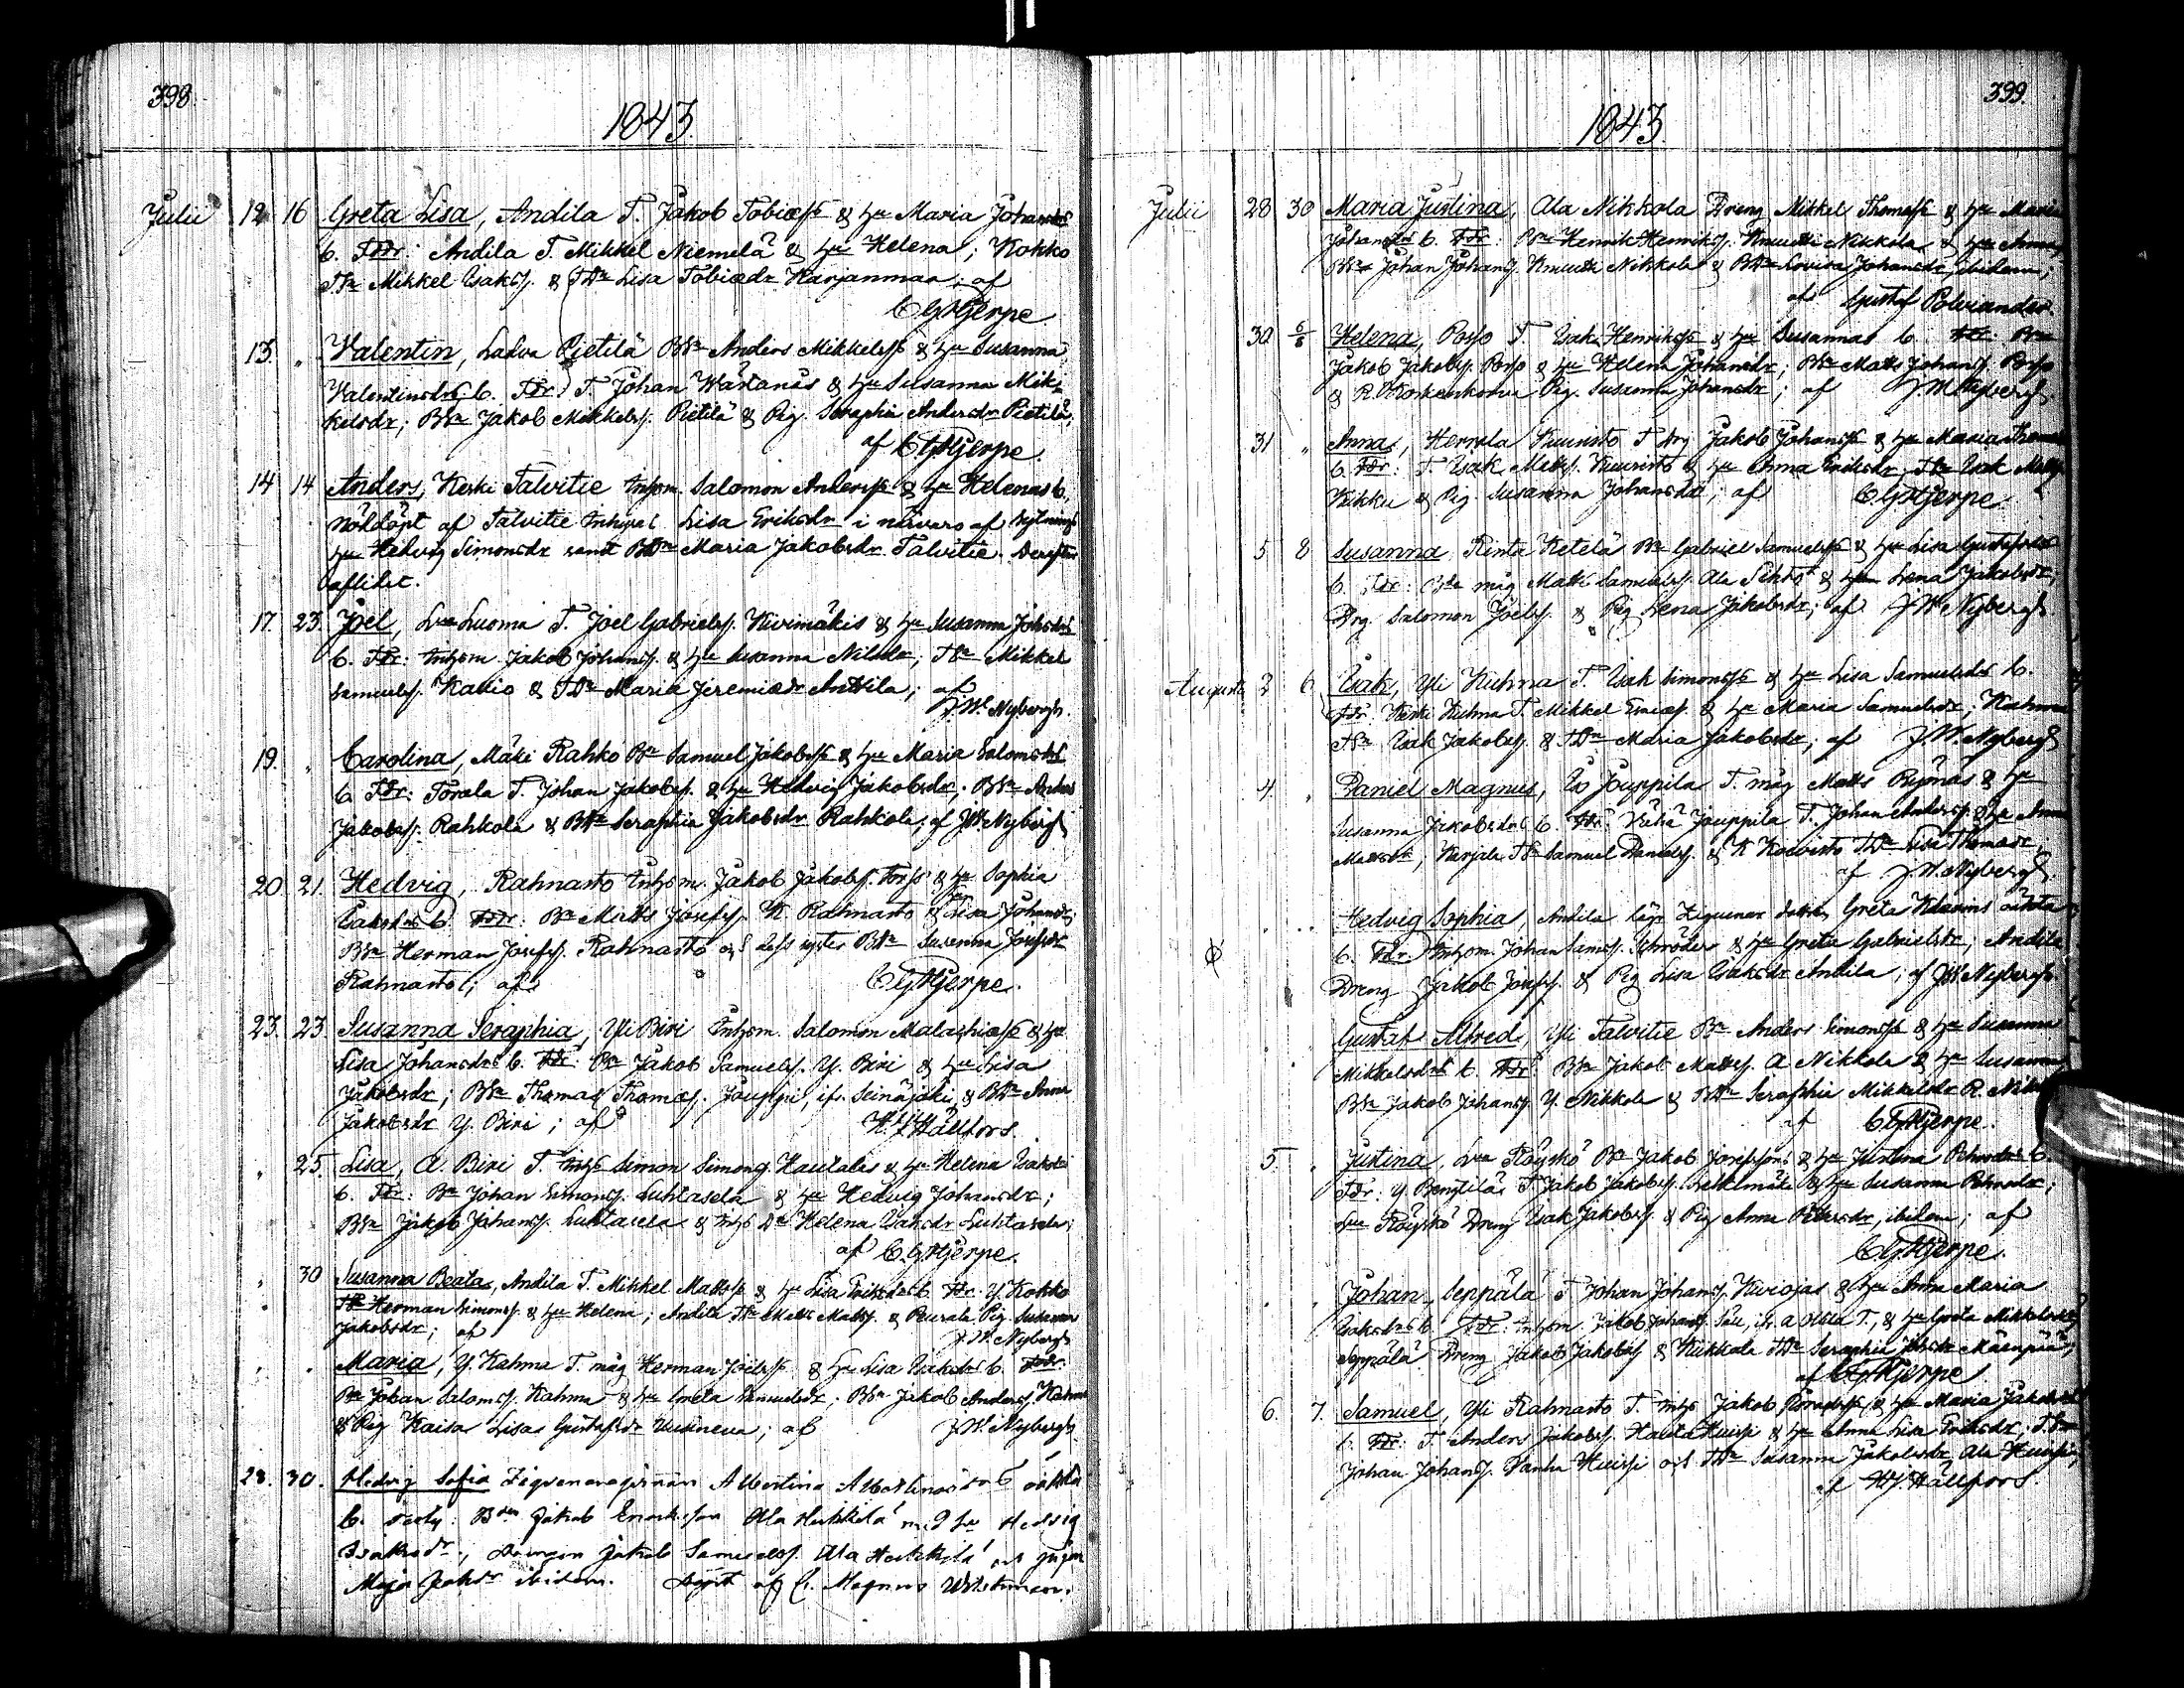 398.
1843.
Julii 12 16 Greta Lisa, Andila T. Jakob Tobiæss & hu Maria Johansdrs
b. Fdr: Andila T. Mikkel Niemelä & hu Helena; Kokko
TSn Mikkel Isakss. & TDr Lisa Tobiædr Karjanmaa; af
C G Hjerpe
13. „ Valentin, Ladva Pietilä BSn Anders Mikkelss & hu Susanna
Valentinsdrs b. Fdr: T. Johan Wärtanäs & hu Susanna Mik-
kelsdr; BSn Jakob Mikkelss. Pietilä & Pig. Seraphia Andersdr Pietilä;
af C G Hjerpe.
14 14 Anders, Keski Talvitie Inhysm. Salomon Anderss & hu Helenas b.
Nöddöpt af Talvitie Inhyses Lisa Eriksdr i närvaro af
hu Hedvig Simonsdr samt BDr Maria Jakobsdr Talvitie. Derefter
aflidit.
17. 23. Joel, Luoma T. Joel Gabrielss. Kivimäkis & hu Susanna Johsdrs
b. Fdr: Inhysm. Jakob Johanss. & hu Susanna Nilsdr; TSn Mikkel
Samuelss. Kallio & TDr Maria Jeremiædr Anttila; af
J. W. Nybergh.
19. „ Carolina, Mäki Rahko Bn Samuel Jakobss & hu Maria Salomsdrs
b. Fdr: Torala T. Johan Jakobss. & hu Hedvig Jakobsdr; BSn Anders
Jakobss. Rahkola & BDr Seraphia Jakobsdr Rahkola; af J W Nybergh
20. 21. Hedvig, Rahnasto Inhysm. Jakob Jakobss. Torss & hu Sophia
Isaksdrs b. Fdr: Bn Matts Josefss. K. Rahnasto & hu Lisa Johansdr,
BSn Herman Josefss. Rahnasto och dess syster BDr Susanna Josefsdr
Rahnasto; af C G Hjerpe.
23. 23. Susanna Seraphia, Yli Biri Inhysm. Salomon Malachiæss & hu
Lisa Johansdrs b. Fdr: Bn Jakob Samuelss. Y. Biri & hu Lisa
Jakobsdr; BSn Thomas Thomæs. Jouppi, ifr. Seinäjoki, & BDr Anna
Jakobsdr Y. Biri; af H. J. Hällfors.
„ 25. Lisa, A. Biri T. Inhys Simon Simonss. Hautalas & hu Helena Isaksdrs
b. Fdr: Bn Johan Simonss. Luhtasela & hu Hedvig Johansdr;
BSn Jakob Johanss. Luhtasela & Inhys Dr Helena Isaksdr Luhtasela;
af C. G Hjerpe.
„ 30 Susanna Beata, Andila T. Mikkel Mattss & hu Lisa Eriksdrs b. Fdr: Y. Kokko
TSn Herman Simonss. & hu Helena; Andila TSn Matts Mattss. & Peurala Pig. Susanna
Jakobsdr; af J. W. Nybergh
„ „ Maria, Y. Kahma T. måg Herman Joelss & hu Lisa Isaksdrs b. Fdr:
Bn Johan Salomss. Kahma & hu Greta Samuelsdr; BSn Jakob Anderss. Kahma
& Pig Kaisa Lisa Gustafsdr Uusineva; af J. W. Nybergh
28. 30. Hedvig Sofia Zigenarepigan Albertina Albertinasdrs oäkta
b. Testes: Bdn Jakob Ala Heikkilä med hu Hedvig
Isaksdr; Drängen Jakob Samuelss. Ala Heikkilä och pigan
Maja Jaksdr ibidem. Döpt af C. Magnus Wilskman.
399.
1843.
Julii 28 30 Maria Justina, Ala Nikkola Dreng Mikkel Thomæss & hu Maria
Johansdrs b. Fdr: Bn Henrik Henrikss. Knuutti Nikkola & hu Anna,
BSn Johan Johanss. Knuutti Nikkola & BDr Lovisa Johansdr, ibidem;
af Gustaf Polviander
30 6/8 Helena, Porso T. Isak Henrikss & hu Susannas b. Fdr: Bn
Jakob Jakobss. Porso & hu Helena Johansdr; BSn Matts Johanss. Porso
& R. Korkenkorva Pig. Susanna Johansdr; af J. W. Nybergh.
31 „ Anna, Herrala Kuuristo T. drg Jakob Johanss & hu Maria
b. Fdr: T. Isak Mattss. Kuuristo & hu Anna Eriksdr; TSn Isak Mattss.
Kikku & Pig. Susanna Johansdr; af C. G Hjerpe.
5 8 Susanna, Rinta Ketelä Bn Gabriel Samuelss & hu Lisa Gustafsdrs
b. Fdr: Bn måg Matts Samuelss. Ala Sihto & hu Lena Jakobsdr;
Drg. Salomon Joelss. & Pig Lena Jakobsdr; af J. W. Nybergh
Augusti 2 6 Isak, Yli Kuhna T. Isak Simonss & hu Lisa Samuelsdrs b.
Fdr: Keski Kuhna T. Mikkel Esaiæs. & hu Maria Samuelsdr; Kahma
TSn Isak Jakobss. & TDr Maria Jakobsdr; af J. W. Nybergh
4. „ Daniel Magnus, Iso Jouppila T. måg Matts Byönäs & hu
Susanna Jakobsdrs b. Fdr: Vähä Jouppila T. Johan Anderss. & hu Anna
Mattsdr; Karjala TSn Samuel Danielss. & K Koivisto TDr Lisa Thomædr,
af J. W. Nybergh
„ „ Hedvig Sophia, Andila Zigenar dotter Greta oäkta
b. Fdr: Inhysm. Johan Schröder & hu Greta Gabrielsdr; Andila
Dreng Jakob Josefss. & Pig Lisa Isaksdr Andila; af J W Nybergh.
„ „ Gustaf Alfred, Yli Talvitie Bn Anders Simonss & hu Susanna
Mikkelsdrs b. Fdr: BSn Jakob Mattss. A Nikkola & hu Susanna
BSn Jakob Johanss. Y. Nikkola & BDr Seraphia Mikkelsdr R. Nikkola
af C G Hjerpe.
5. „ Justina, Röyskö Bn Jakob Josefssons & hu Justina b.
Fdr: Y Bengtilä T. Jakob Jakobss. & hu Susanna;
Röyskö Dreng Isak Jakobss. & Pig Anna Petersdr, ibidem; af
C. G Hjerpe.
„ „ Johan, Seppälä T. Johan Johanss. Kiviojas & hu Anna Maria
Isaksdrs b. Fdr: Inhysm. Jakob Johanss. & hu Greta Mikkelsdr;
Seppälä Dreng Jakob Jakobss & Kukkala TDr Seraphia Mäenpää;
af C G Hjerpe
6. 7. Samuel, Yli Rahnasto T. Inhys Jakob & hu Maria Jakobsdrs
b. Fdr: T. Anders Jakobss. Hauta Huissi & hu Anna Lisa Eriksdr; TSn
Johan Johanss. Vanha Huissi och TDr Susanna Jakobsdr Ala Huissi;
af H J. Hällfors.